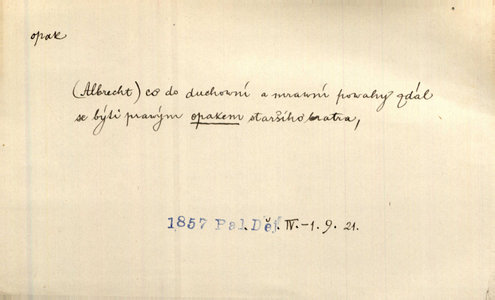 opak
(Albrecht) co do duchovní a mravní povahy zdál
se býti pravým opakem staršího bratra,
1857 Pal. Děj. IV.-1. 9. 21.